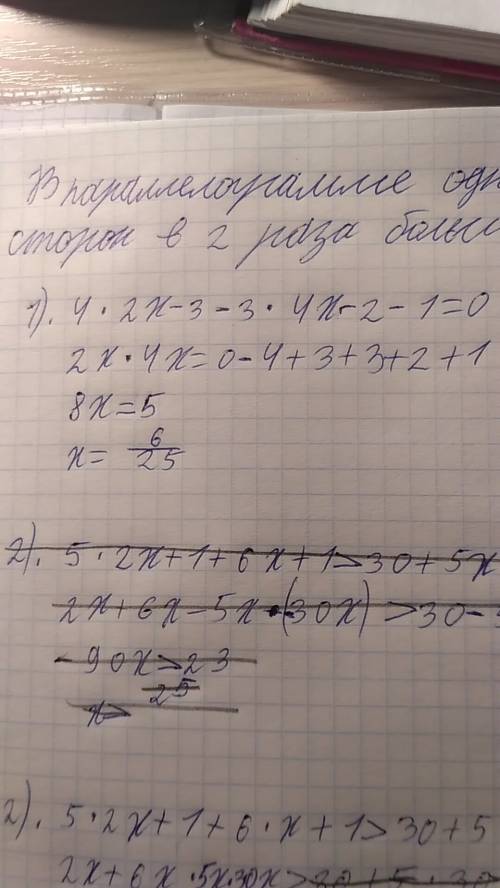 В параллелограмме
сторон в 2 раза
1). 4 · 2x - 3 - 3 · 4x - 2 - 1 = 0
2x · 4x = 0 - 4 + 3 + 3 + 2 + 1
8x = 5
x = 6/25
2). 5 · 2x + 1 + 6x + 1 > 30 + 5x
2x + 6x - 5x - (30x) > 30 -
- 90x > 23
x > 25
2). 5 · 2x + 1 + 6 · x + 1 > 30 + 5
2x + 6x · 5x · 30x > 30 + 5 · 30